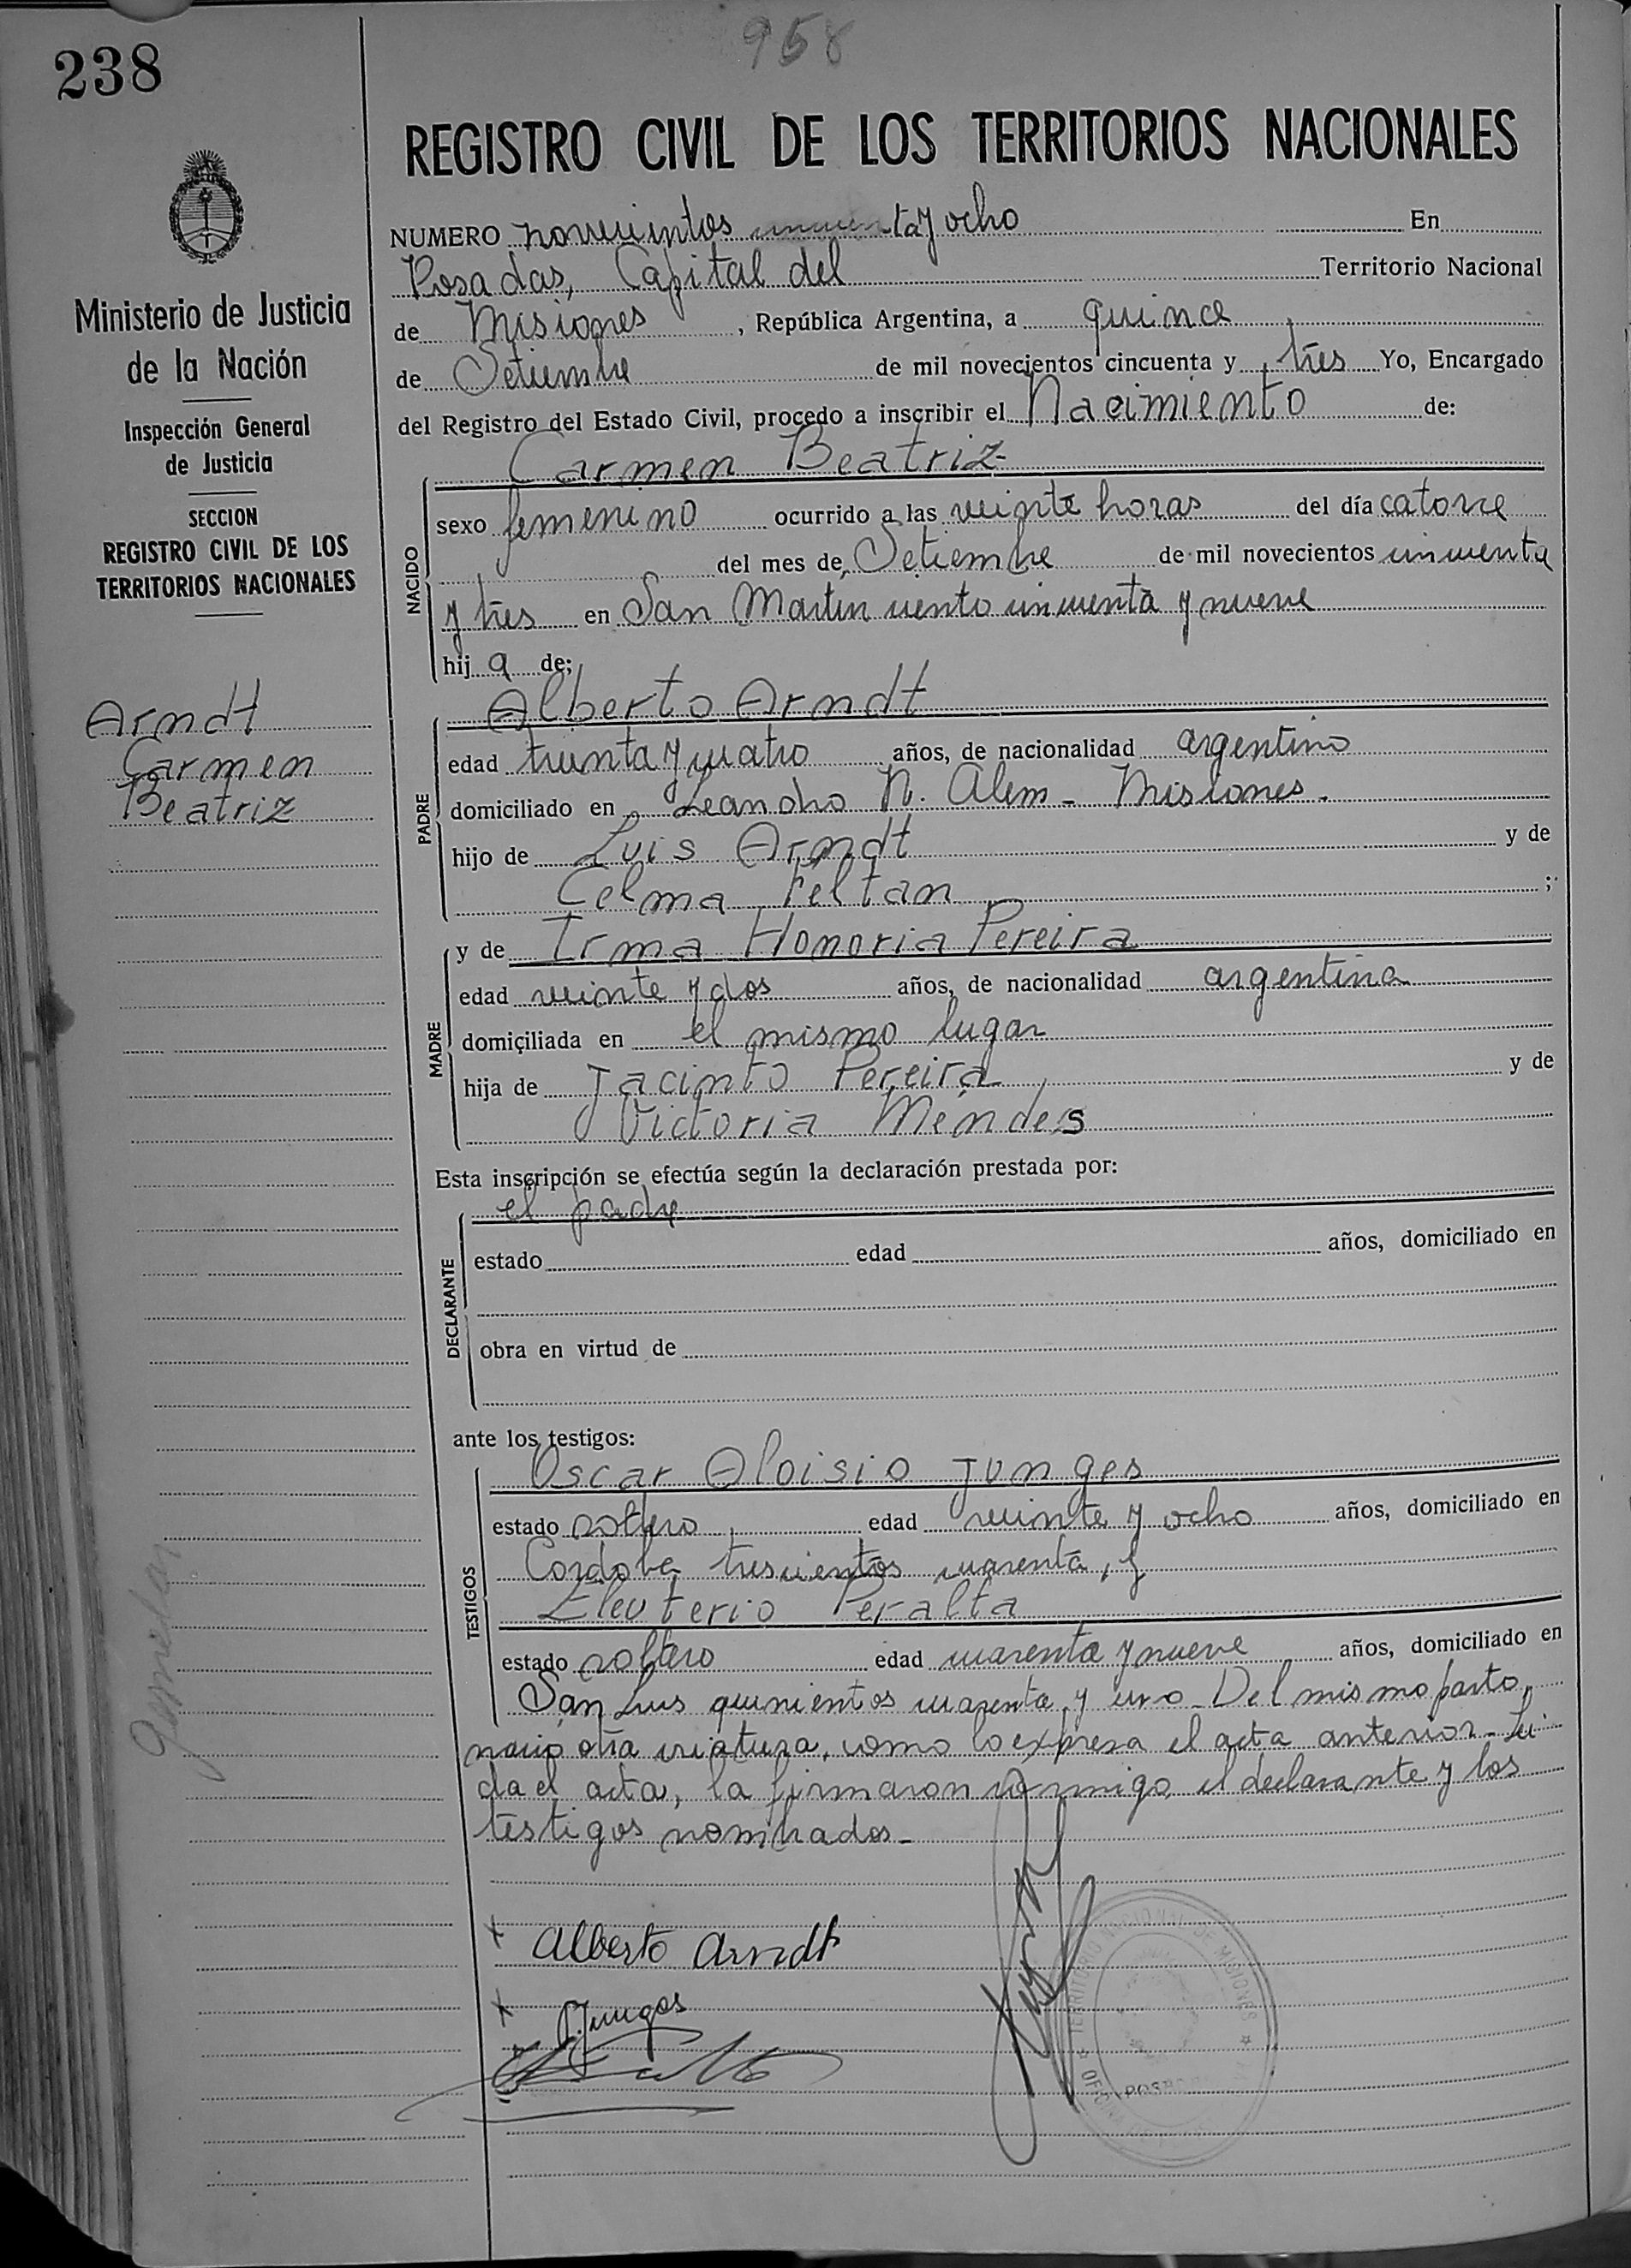 958
238
REGISTRO CIVIL DE LOS TERRITORIOS NACIONALES
NUMERO novecientos cincuenta y ocho En
Posadas, Capital del Territorio Nacional
de Misiones, República Argentina, a quince
de Setiembre de mil novecientos cincuenta y tres Yo, Encargado
del Registro del Estado Civil, procedo a inscribir el Nacimiento de:
Carmen Beatriz
NACIDO
sexo femenino ocurrido a las veinte horas del día catorce
del mes de Setiembre de mil novecientos cincuenta
y tres en San Martin ciento cincuenta y nueve
hij a de;
Alberto Arndt
PADRE
edad treinta y cuatro años, de nacionalidad argentino
domiciliado en Leandro N. Alem - Misiones.
hijo de Luis Arndt y de
Celma Feltan ;
MADRE
y de Irma Honoria Pereira
edad veinte y dos años, de nacionalidad argentina
domiciliada en el mismo lugar
hija de Jacinto Pereira y de
Victoria Méndes
Esta inscripción se efectúa según la declaración prestada por:
el padre
DECLARANTE
estado edad años, domiciliado en
obra en virtud de
ante los testigos:
Oscar Aloisio Junges
TESTIGOS
estado soltero, edad veinte y ocho años, domiciliado en
Cordoba trescientos cuarenta, y
Eleuterio Peralta
estado soltero edad cuarenta y nueve años, domiciliado en
San Luis quinientos cuarenta y uno - Del mismo parto,
nació otra criatura, como lo expresa el acta anterior - Leí-
da el acta, la firmaron conmigo el declarante y los
testigos nombrados -
x Alberto Arndt
x Junges
TERRITORIO NACIONAL DE MISIONES
OFICINA
POSADAS
Ministerio de Justicia
de la Nación
Inspección General
de Justicia
SECCION
REGISTRO CIVIL DE LOS
TERRITORIOS NACIONALES
Arndt
Carmen
Beatriz
Gemelar